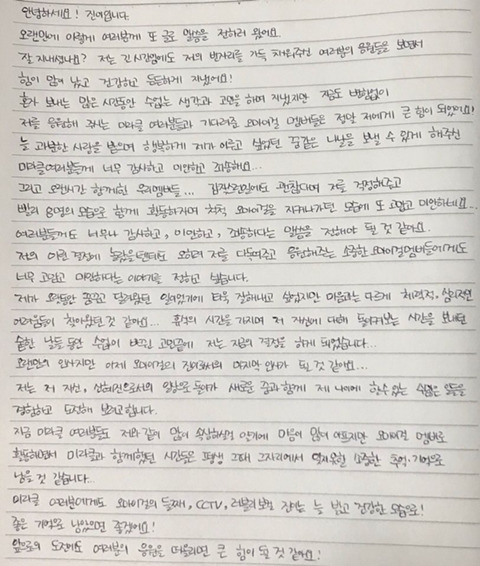 안녕하세요! 진이입니다.
오랜만에 이렇게 여러분께 또 글로 말씀을 전하러 왔어요.
잘 지내셨나요? 저는 긴 시간임에도 저의 빈자리를 가득 채워주신 여러분의 응원들을 보면서
힘이 많이 났고 건강하고 든든하게 지냈어요!
혼자 보내는 많은 시간동안 수없는 생각과 고민을 하며 지냈지만 지금도 변함없이
저를 응원해 주시는 미라클 여러분들과 기다려준 오마이걸 멤버들은 정말 저에게 큰 힘이 되었어요!
늘 과분한 사랑을 받으며 행복하게 제가 이루고 싶었던 꿈같은 나날을 보낼 수 있게 해주신
미라클여러분들께 너무 감사하고 미안하고 죄송해요...
그리고 오랜시간 함께한 우리멤버들... 갑작스런일에도 괜찮다며 저를 걱정해주고
빨리 8명의 모습으로 함께 활동하자며 척척 오마이걸을 지켜나가던 모습에 또 고맙고 미안하네요...
여러분들께도 너무나 감사하고, 미안하고, 죄송하다는 말씀을 전해야 될 것 같아요.
저의 이런 결정에 놀랐을텐데도 오히려 저를 다독여주고 응원해주는 소중한 오마이걸멤버들에게도
너무 고맙고 미안하다는 이야기를 전하고 싶습니다.
제가 오랫동안 꿈꾸고 달려왔던 일이었기에 더욱 잘해내고 싶었지만 마음과는 다르게 체력적, 심리적인
어려움들이 찾아왔던 것 같아요... 휴식의 시간을 가지며 저 자신에 대해 돌이켜보는 시간을 보내던
숱한 날들 동안 수없이 바뀌던 고민끝에 저는 지금의 결정을 하게 되었습니다...
오랜만의 인사지만 이제 오마이걸의 진이로서의 마지막 인사가 될 것 같아요...
저는 저 자신, 신혜진으로서의 일상으로 돌아가 새로운 꿈과 함께 제 나이에 할수있는 수많은 일들을
경험하고 도전해 보려고합니다.
지금 미라클 여러분들도 저와 같이 많이 속상하실걸 알기에 마음이 많이 아프지만 오마이걸 멤버로
활동하면서 미라클과 함께했던 시간들은 평생 그때 그자리에서 잊지못할 소중한 추억·기억으로
남을 것 같습니다..
미라클 여러분에게도 오마이걸의 둘째, CCTV, 러블리보컬 진이는 늘 밝고 건강한 모습으로!
좋은 기억으로 남았으면 좋겠어요!
앞으로의 도전에도 여러분의 응원을 떠올리면 큰 힘이 될 것 같아요!